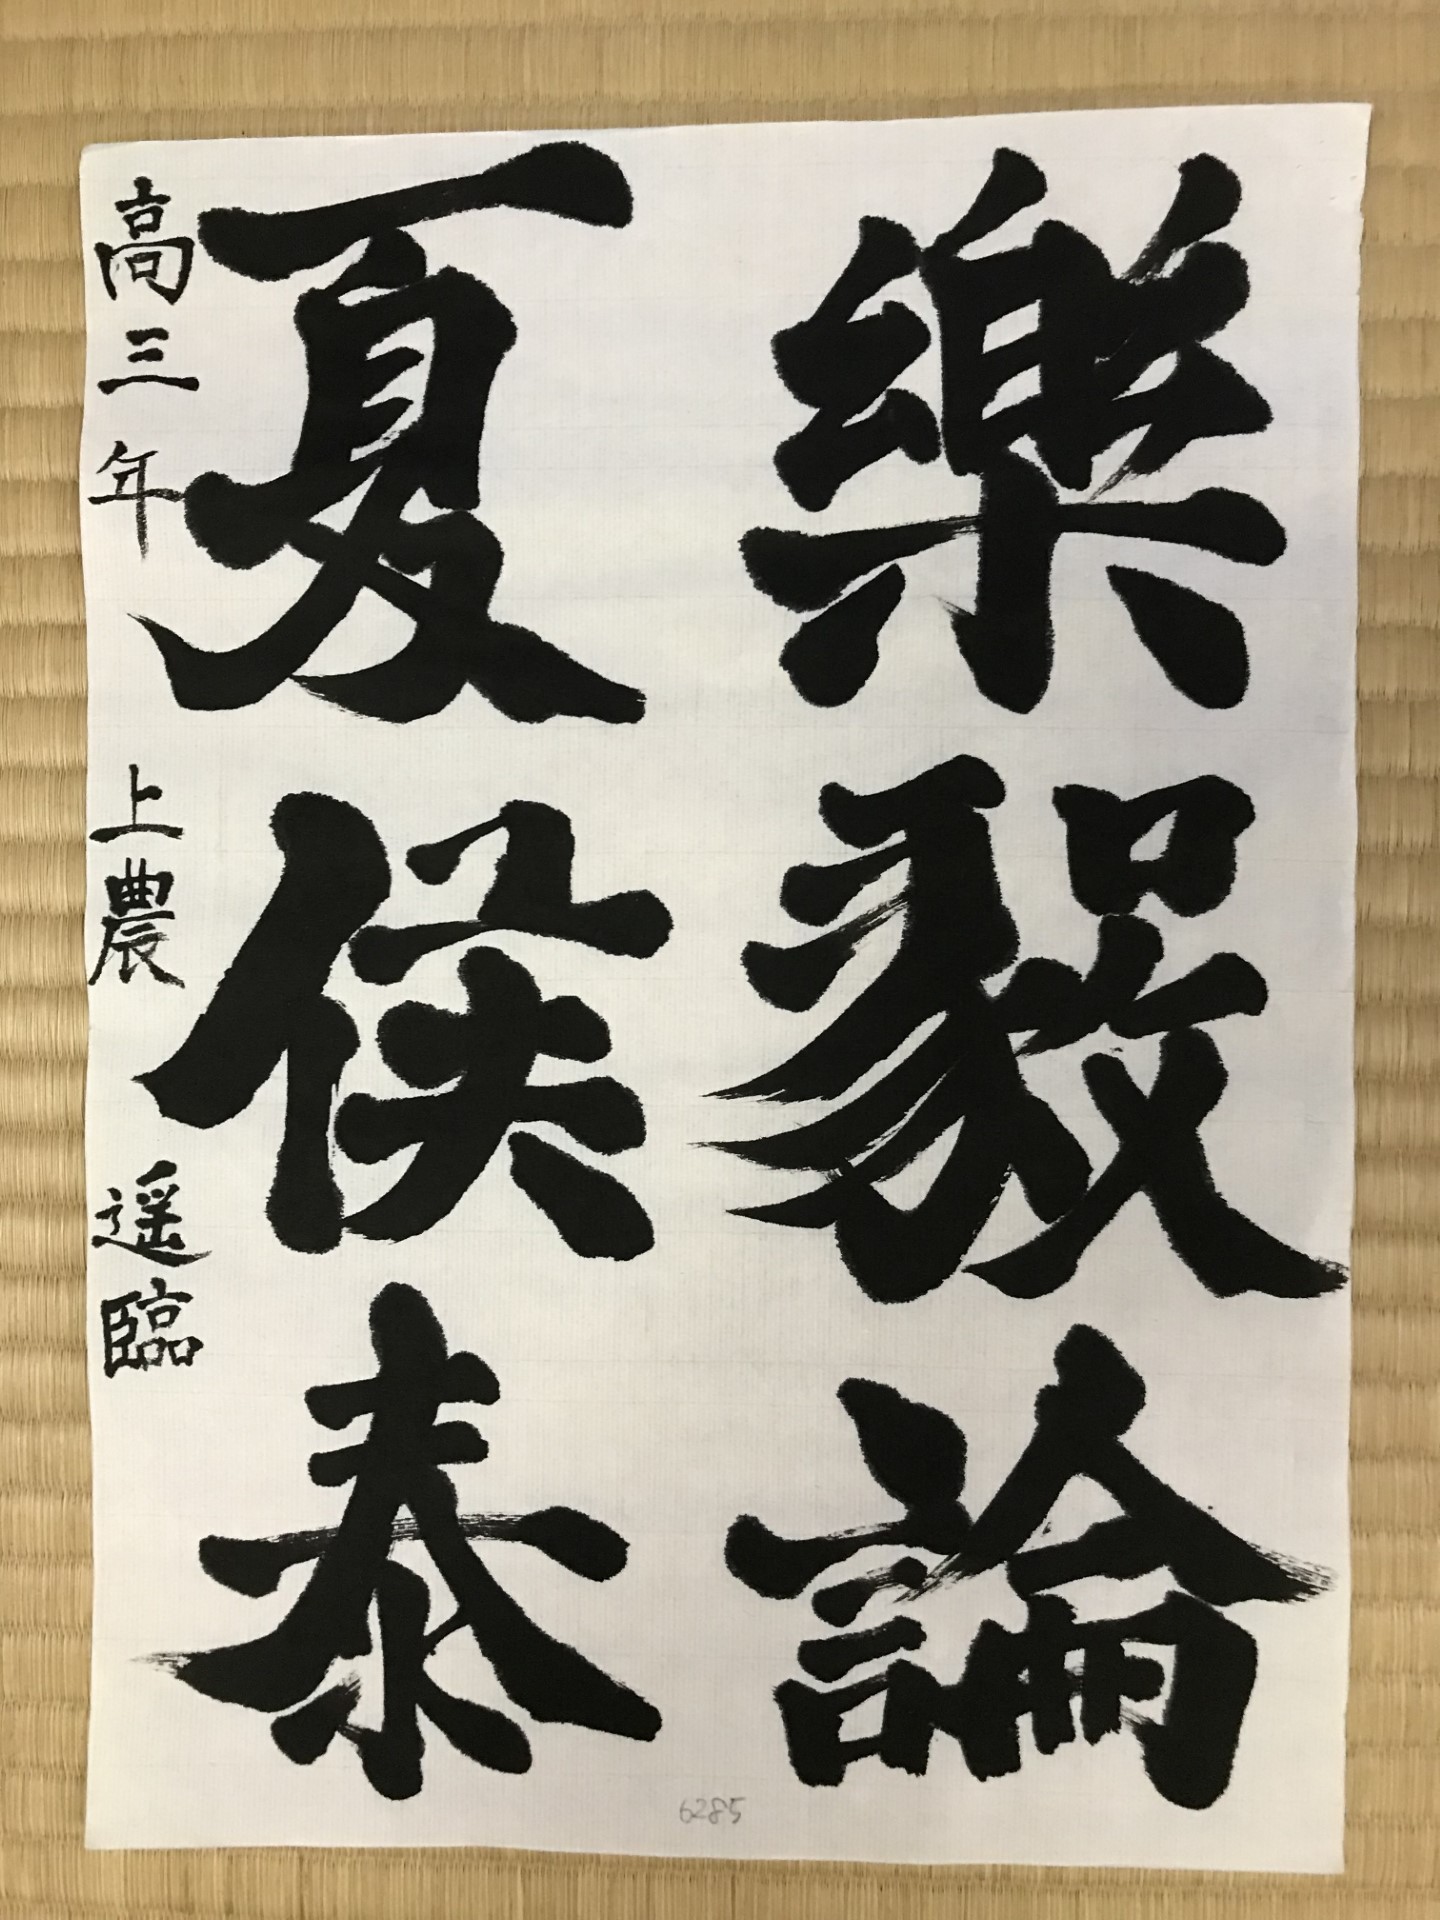 樂毅論
夏侯泰
高三年 上農 遥臨
6285